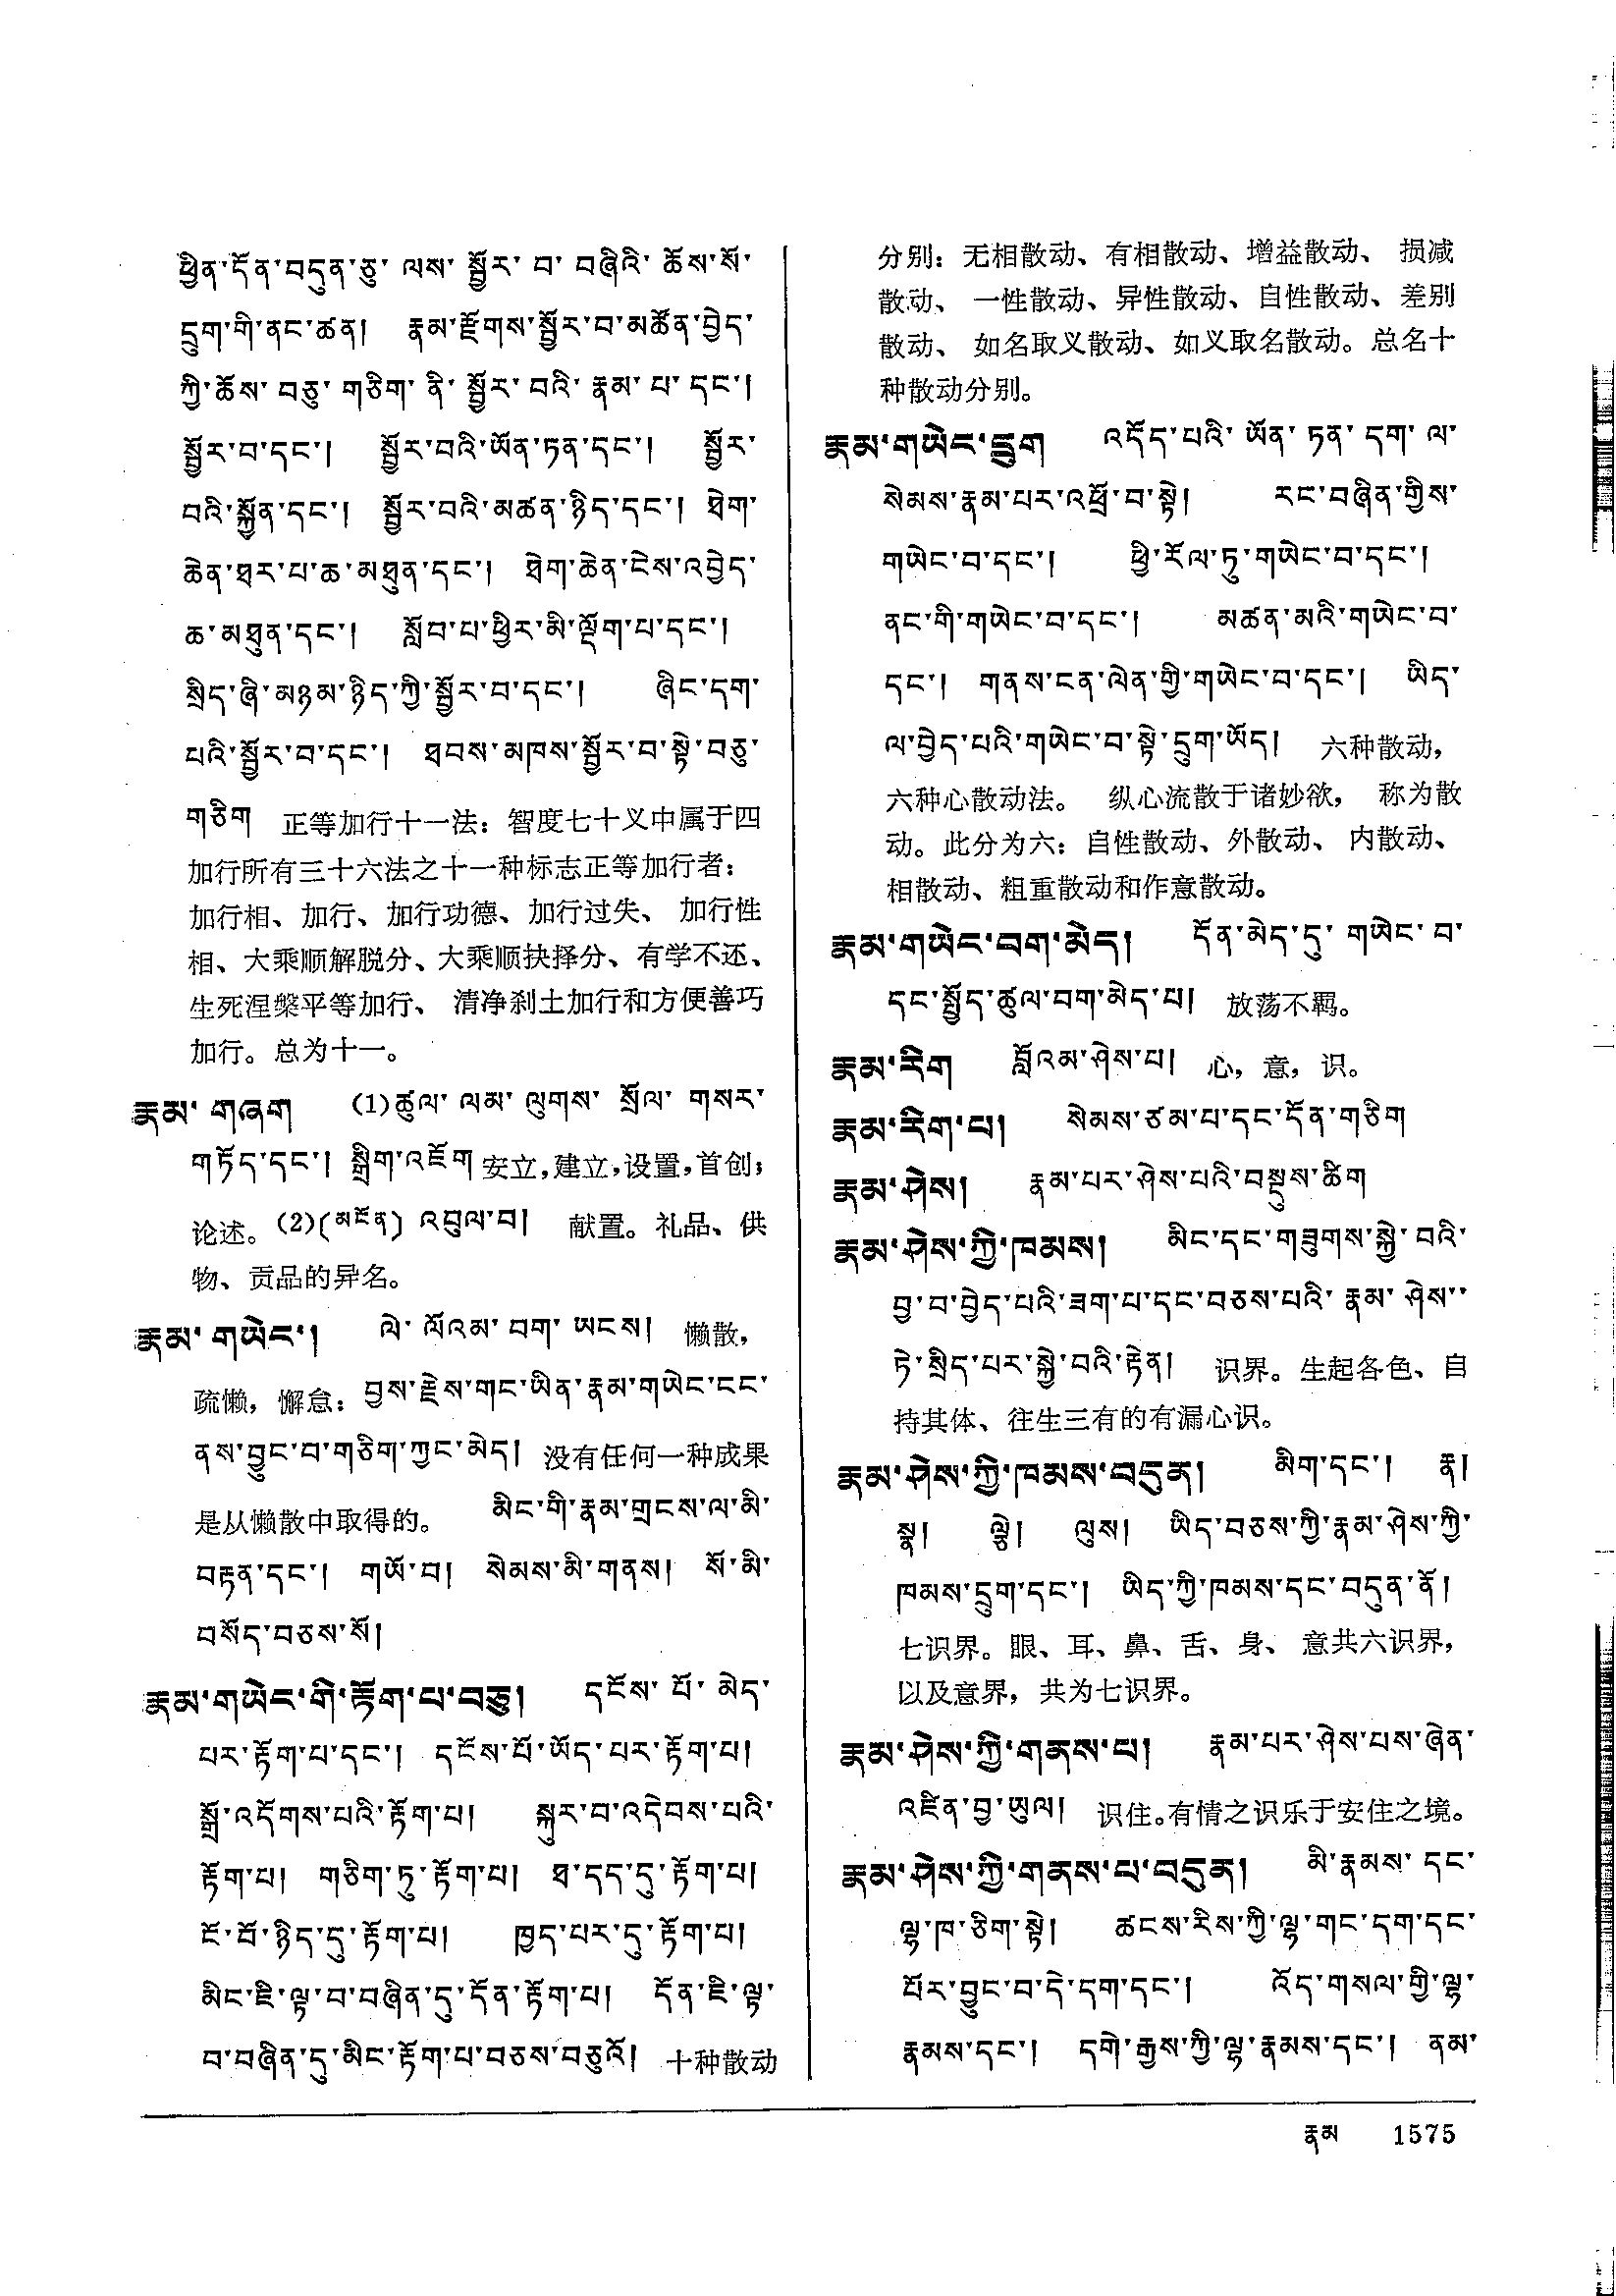 ཕྱིན་དོན་བདུན་ཅུ་ ལས་ སྦྱོར་ བ་ བཞིའི་ ཆོས་སོ་
དྲུག་གི་ནང་ཚན། རྣམ་རྫོགས་སྦྱོར་བ་མཚོན་བྱེད་
ཀྱི་ཆོས་ བཅུ་ གཅིག་ ནི་ སྦྱོར་ བའི་ རྣམ་ པ་ དང་།
སྦྱོར་བ་དང་། སྦྱོར་བའི་ཡོན་ཏན་དང་། སྦྱོར་
བའི་སྐྱོན་དང་། སྦྱོར་བའི་མཚན་ཉིད་དང་། ཐེག་
ཆེན་ཐར་པ་ཆ་མཐུན་དང་། ཐེག་ཆེན་ངེས་འབྱེད་
ཆ་མཐུན་དང་། སློབ་པ་ཕྱིར་མི་ལྡོག་པ་དང་།
སྲིད་ཞི་མཉམ་ཉིད་ཀྱི་སྦྱོར་བ་དང་། ཞིང་དག་
པའི་སྦྱོར་བ་དང་། ཐབས་མཁས་སྦྱོར་བ་སྟེ་བཅུ་
གཅིག 正等加行十一法：智度七十义中属于四
加行所有三十六法之十一种标志正等加行者：
加行相、加行、加行功德、加行过失、 加行性
相、大乘顺解脱分、大乘顺抉择分、有学不还、
生死涅槃平等加行、 清净刹土加行和方便善巧
加行。总为十一。
རྣམ་ གཞག (1)ཚུལ་ ལམ་ ལུགས་ སྲོལ་ གསར་
གཏོད་དང་། སྒྲིག་འཇོག 安立，建立，设置，首创；
论述。(2)(མངོན) འབུལ་བ། 献置。礼品、供
物、贡品的异名。
རྣམ་ གཡེང་། ལེ་ ལོའམ་ བག་ ཡངས། 懒散，
疏懒，懈怠：བྱས་རྗེས་གང་ཡིན་རྣམ་གཡེང་ངང་
ནས་བྱུང་བ་གཅིག་ཀྱང་མེད། 没有任何一种成果
是从懒散中取得的。 མིང་གི་རྣམ་གྲངས་ལ་མི་
བརྟན་དང་། གཡོ་བ། སེམས་མི་གནས། སོ་མི་
བསོད་བཅས་སོ།
རྣམ་གཡེང་གི་རྟོག་པ་བཅུ། དངོས་ པོ་ མེད་
པར་རྟོག་པ་དང་། དངོས་པོ་ཡོད་པར་རྟོག་པ།
སྒྲོ་འདོགས་པའི་རྟོག་པ། སྐུར་བ་འདེབས་པའི་
རྟོག་པ། གཅིག་ཏུ་རྟོག་པ། ཐ་དད་དུ་རྟོག་པ།
ངོ་བོ་ཉིད་དུ་རྟོག་པ། ཁྱད་པར་དུ་རྟོག་པ།
མིང་ཇི་ལྟ་བ་བཞིན་དུ་དོན་རྟོག་པ། དོན་ཇི་ལྟ་
བ་བཞིན་དུ་མིང་རྟོག་པ་བཅས་བཅུའོ། 十种散动
分别：无相散动、有相散动、增益散动、 损减
散动、 一性散动、异性散动、自性散动、差别
散动、 如名取义散动、如义取名散动。总名十
种散动分别。
རྣམ་གཡེང་དྲུག འདོད་པའི་ ཡོན་ ཏན་ དག་ ལ་
སེམས་རྣམ་པར་འཕྲོ་བ་སྟེ། རང་བཞིན་གྱིས་
གཡེང་བ་དང་། ཕྱི་རོལ་ཏུ་གཡེང་བ་དང་།
ནང་གི་གཡེང་བ་དང་། མཚན་མའི་གཡེང་བ་
དང་། གནས་ངན་ལེན་གྱི་གཡེང་བ་དང་། ཡིད་
ལ་བྱེད་པའི་གཡེང་བ་སྟེ་དྲུག་ཡོད། 六种散动，
六种心散动法。 纵心流散于诸妙欲， 称为散
动。此分为六：自性散动、外散动、 内散动、
相散动、粗重散动和作意散动。
རྣམ་གཡེང་བག་མེད། དོན་མེད་དུ་ གཡེང་ བ་
དང་སྤྱོད་ཚུལ་བག་མེད་པ། 放荡不羁。
རྣམ་རིག བློའམ་ཤེས་པ། 心，意，识。
རྣམ་རིག་པ། སེམས་ཙམ་པ་དང་དོན་གཅིག
རྣམ་ཤེས། རྣམ་པར་ཤེས་པའི་བསྡུས་ཚིག
རྣམ་ཤེས་ཀྱི་ཁམས། མིང་དང་གཟུགས་སྐྱེ་ བའི་
བྱ་བ་བྱེད་པའི་ཟག་པ་དང་བཅས་པའི་ རྣམ་ ཤེས་་
ཏེ་སྲིད་པར་སྐྱེ་བའི་རྟེན། 识界。生起各色、自
持其体、往生三有的有漏心识。
རྣམ་ཤེས་ཀྱི་ཁམས་བདུན། མིག་དང་། རྣ།
སྣ། ལྕེ། ལུས། ཡིད་བཅས་ཀྱི་རྣམ་ཤེས་ཀྱི་
ཁམས་དྲུག་དང་། ཡིད་ཀྱི་ཁམས་དང་བདུན་ནོ།
七识界。眼、耳、鼻、舌、身、 意共六识界，
以及意界，共为七识界。
རྣམ་ཤེས་ཀྱི་གནས་པ། རྣམ་པར་ཤེས་པས་ཞེན་
འཛིན་བྱ་ཡུལ། 识住。有情之识乐于安住之境。
རྣམ་ཤེས་ཀྱི་གནས་པ་བདུན། མི་རྣམས་ དང་
ལྷ་ཁ་ཅིག་སྟེ། ཚངས་རིས་ཀྱི་ལྷ་གང་དག་དང་
པོར་བྱུང་བ་དེ་དག་དང་། འོད་གསལ་གྱི་ལྷ་
རྣམས་དང་། དགེ་རྒྱས་ཀྱི་ལྷ་རྣམས་དང་། ནམ་
རྣམ 1575